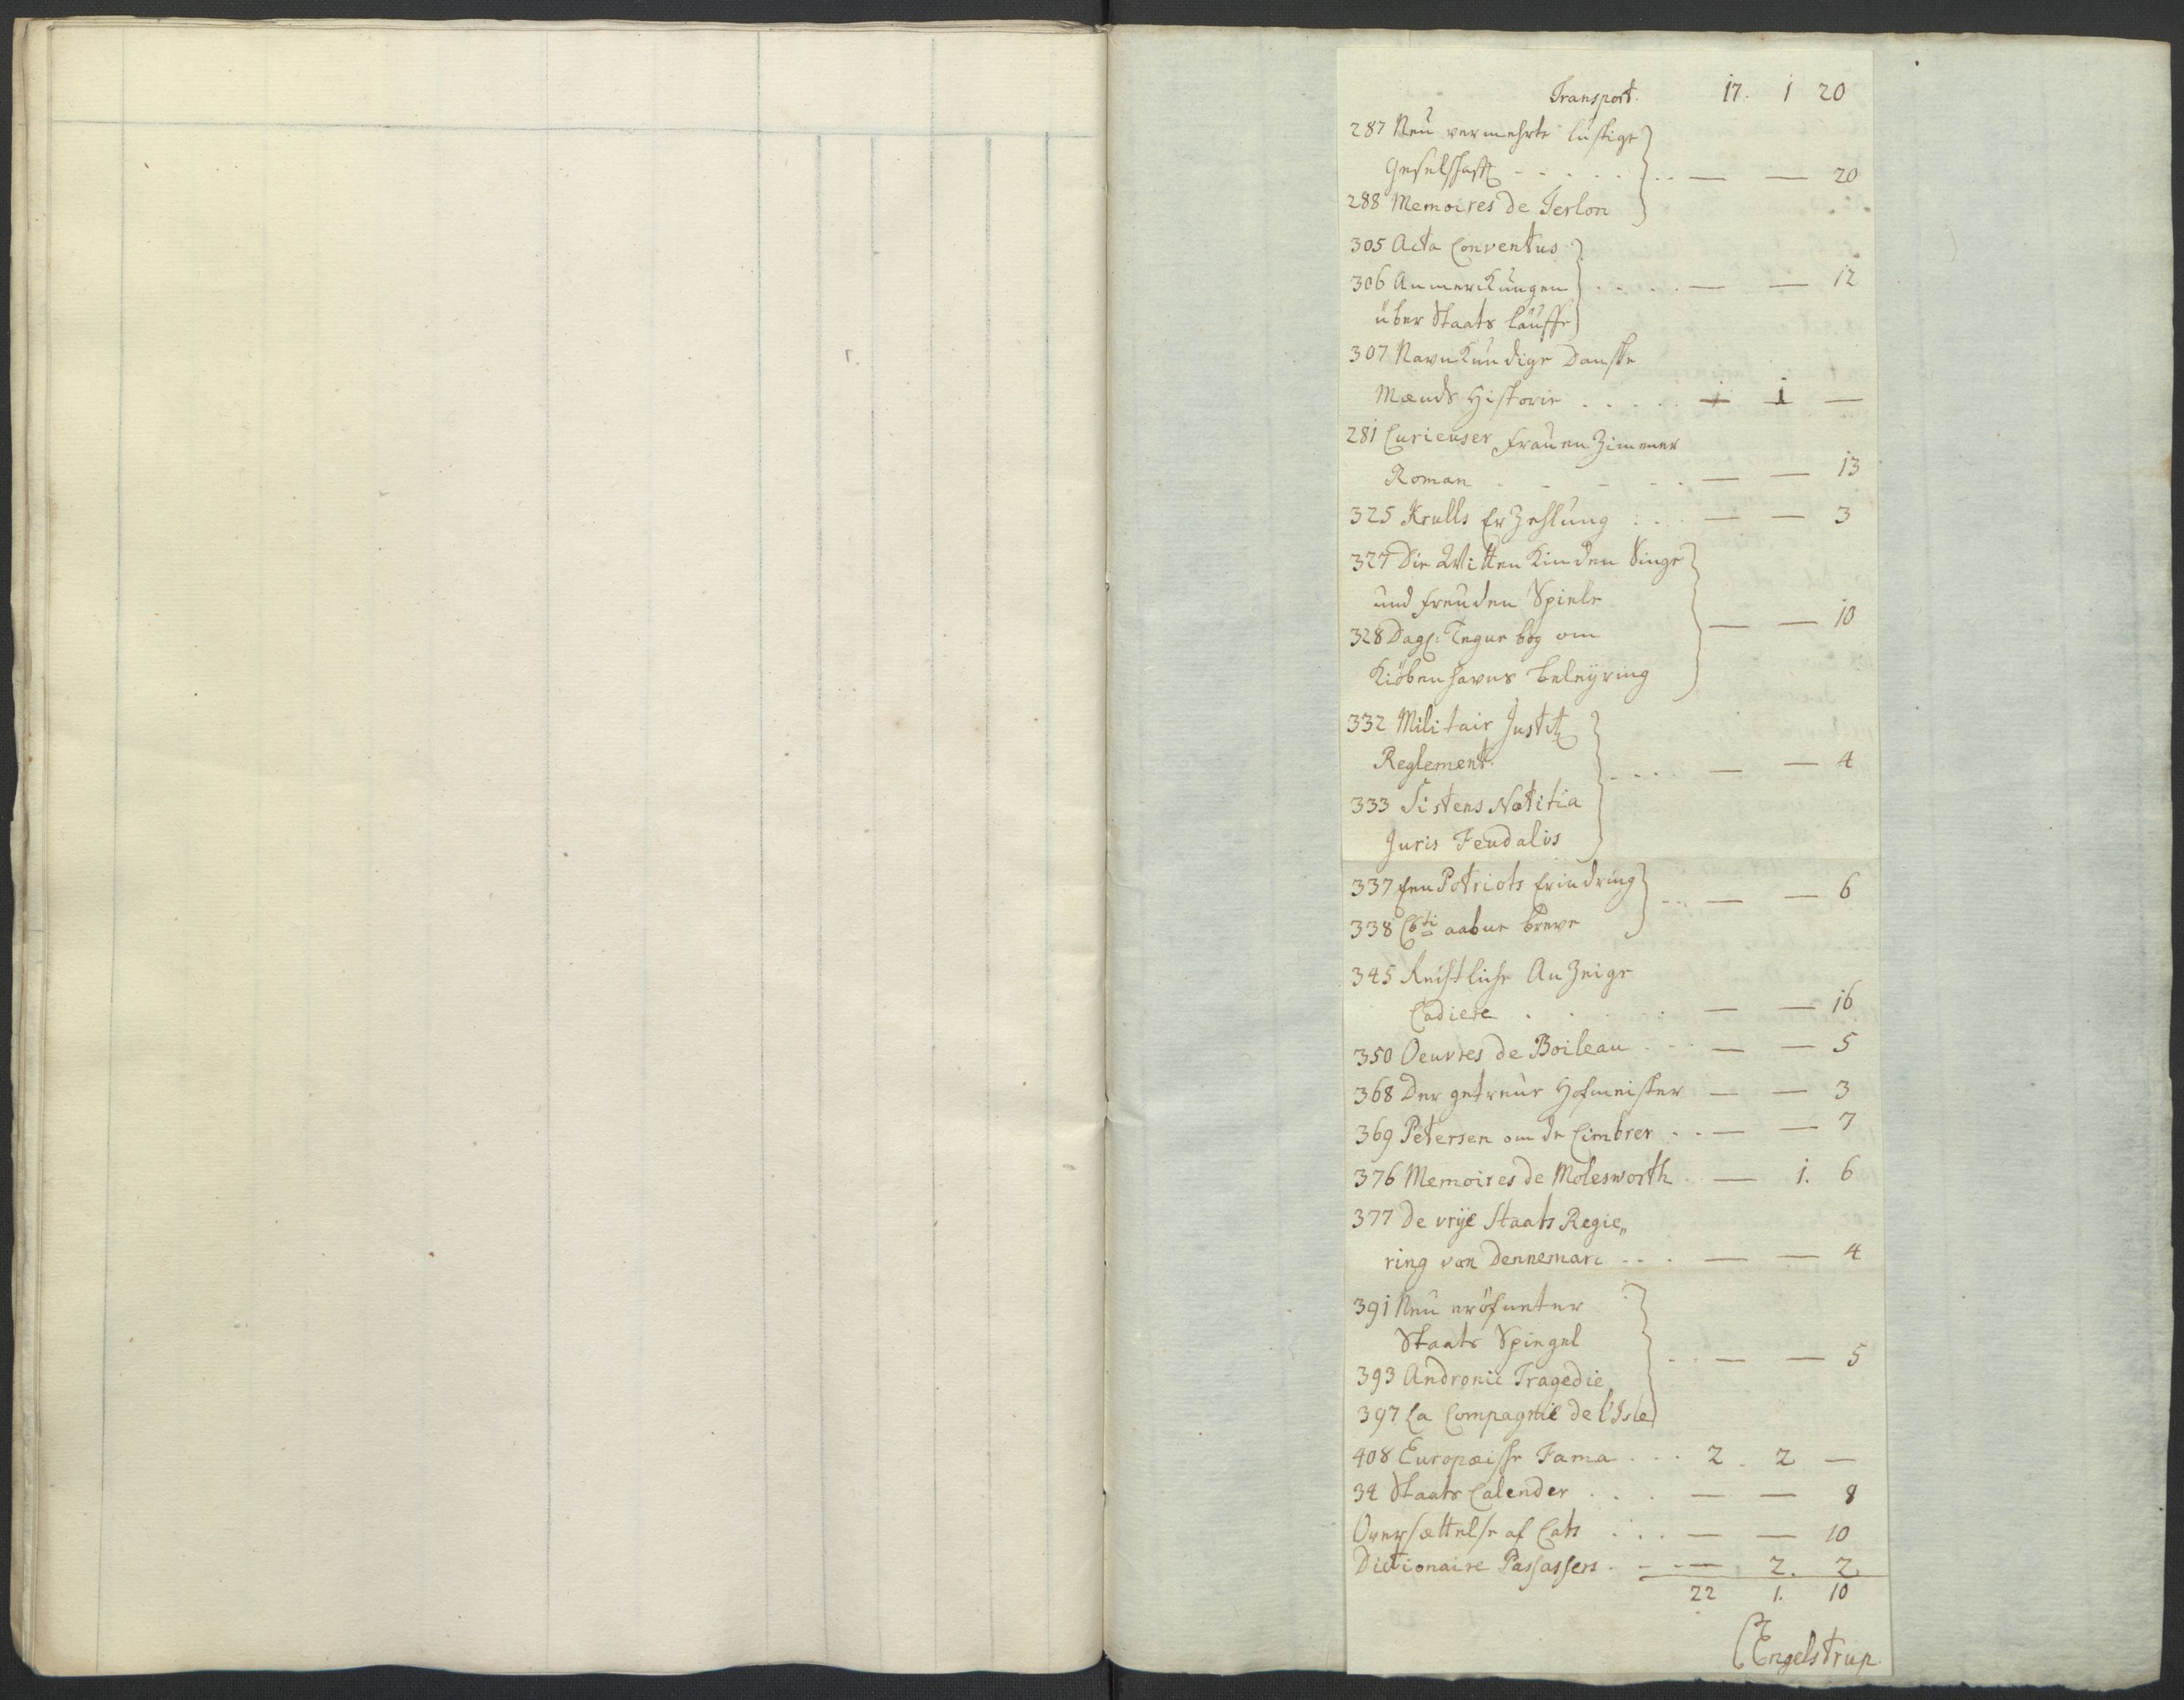 Transport. 17. 1 20
287 Neu vermehrte lustige
Geselschafft - - - - - - — — 20
288 Memoires de Terlon
305 Acta Conventus
306 Anmerckungen . . . . — — 12
über Staats läuffe
307 Navnkundige Danske
Mænds Historie . . . . . 1 —
281 Curieuser Frauen Zimmer
Roman . - - - . — — 13
325 Krulls Erzehlung . . . — — 3
327 Die Witten Kinden Singe
und freuden Spiele
328 Dagl: Tegne bog om — — 10
Kiöbenhavns beleyring
332 Militair Justitz
Reglement. - - - - — — 4
333 Sistens Notitia
Juris Feudalis
337 Een Patriots Erindring . . — — 6
338 aabne breve
345 Rechtliche Anzeige
Cadiere . . . . . — — 16
350 Oeuvres de Boileau . . . — — 5
368 Der getreue Hofmeister — — 3
369 Petersen om de Cimbrer . . — — 7
376 Memoires de Molesworth . — 1. 6
377 De vrije Staats Regie„
ring van Dennemarc . . . — — 4
391 Neu eröfneter
Staats Spiegel
393 Andronic Tragedie . . — — 5
397 La Compagnie de l'Isle
408 Europæische Fama . . . 2. 2 —
34 Staats Calender . . . — — 8
Oversættelse af Cats . . . — — 10
Dictionaire - - — 2. 2.
22 1. 10
Engelstrup